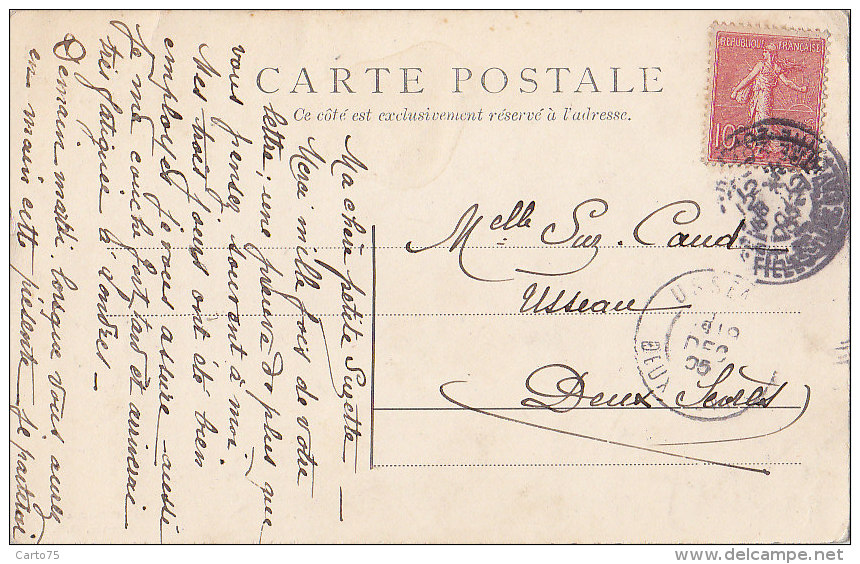 CARTE POSTALE
Ce côté est exclusivement réservé à l'adresse.
REPUBLIQUE FRANÇAISE
10
Melle Suz. Caud
Usseau
Deux Sèvres
USSEAU
19
DEC
05
DEUX
Ma chère petite Suzette –
Merci mille fois de votre
lettre, une preuve de plus que
vous pensez souvent à moi.
Mes trois jours ont été bien
employés je vous assure – aussi
je me couche fort tard et arriverai
très fatiguée à Londres –
Demain mardi, lorsque vous aurez
en main cette présente – je partirai
Carto75
delcampe.net